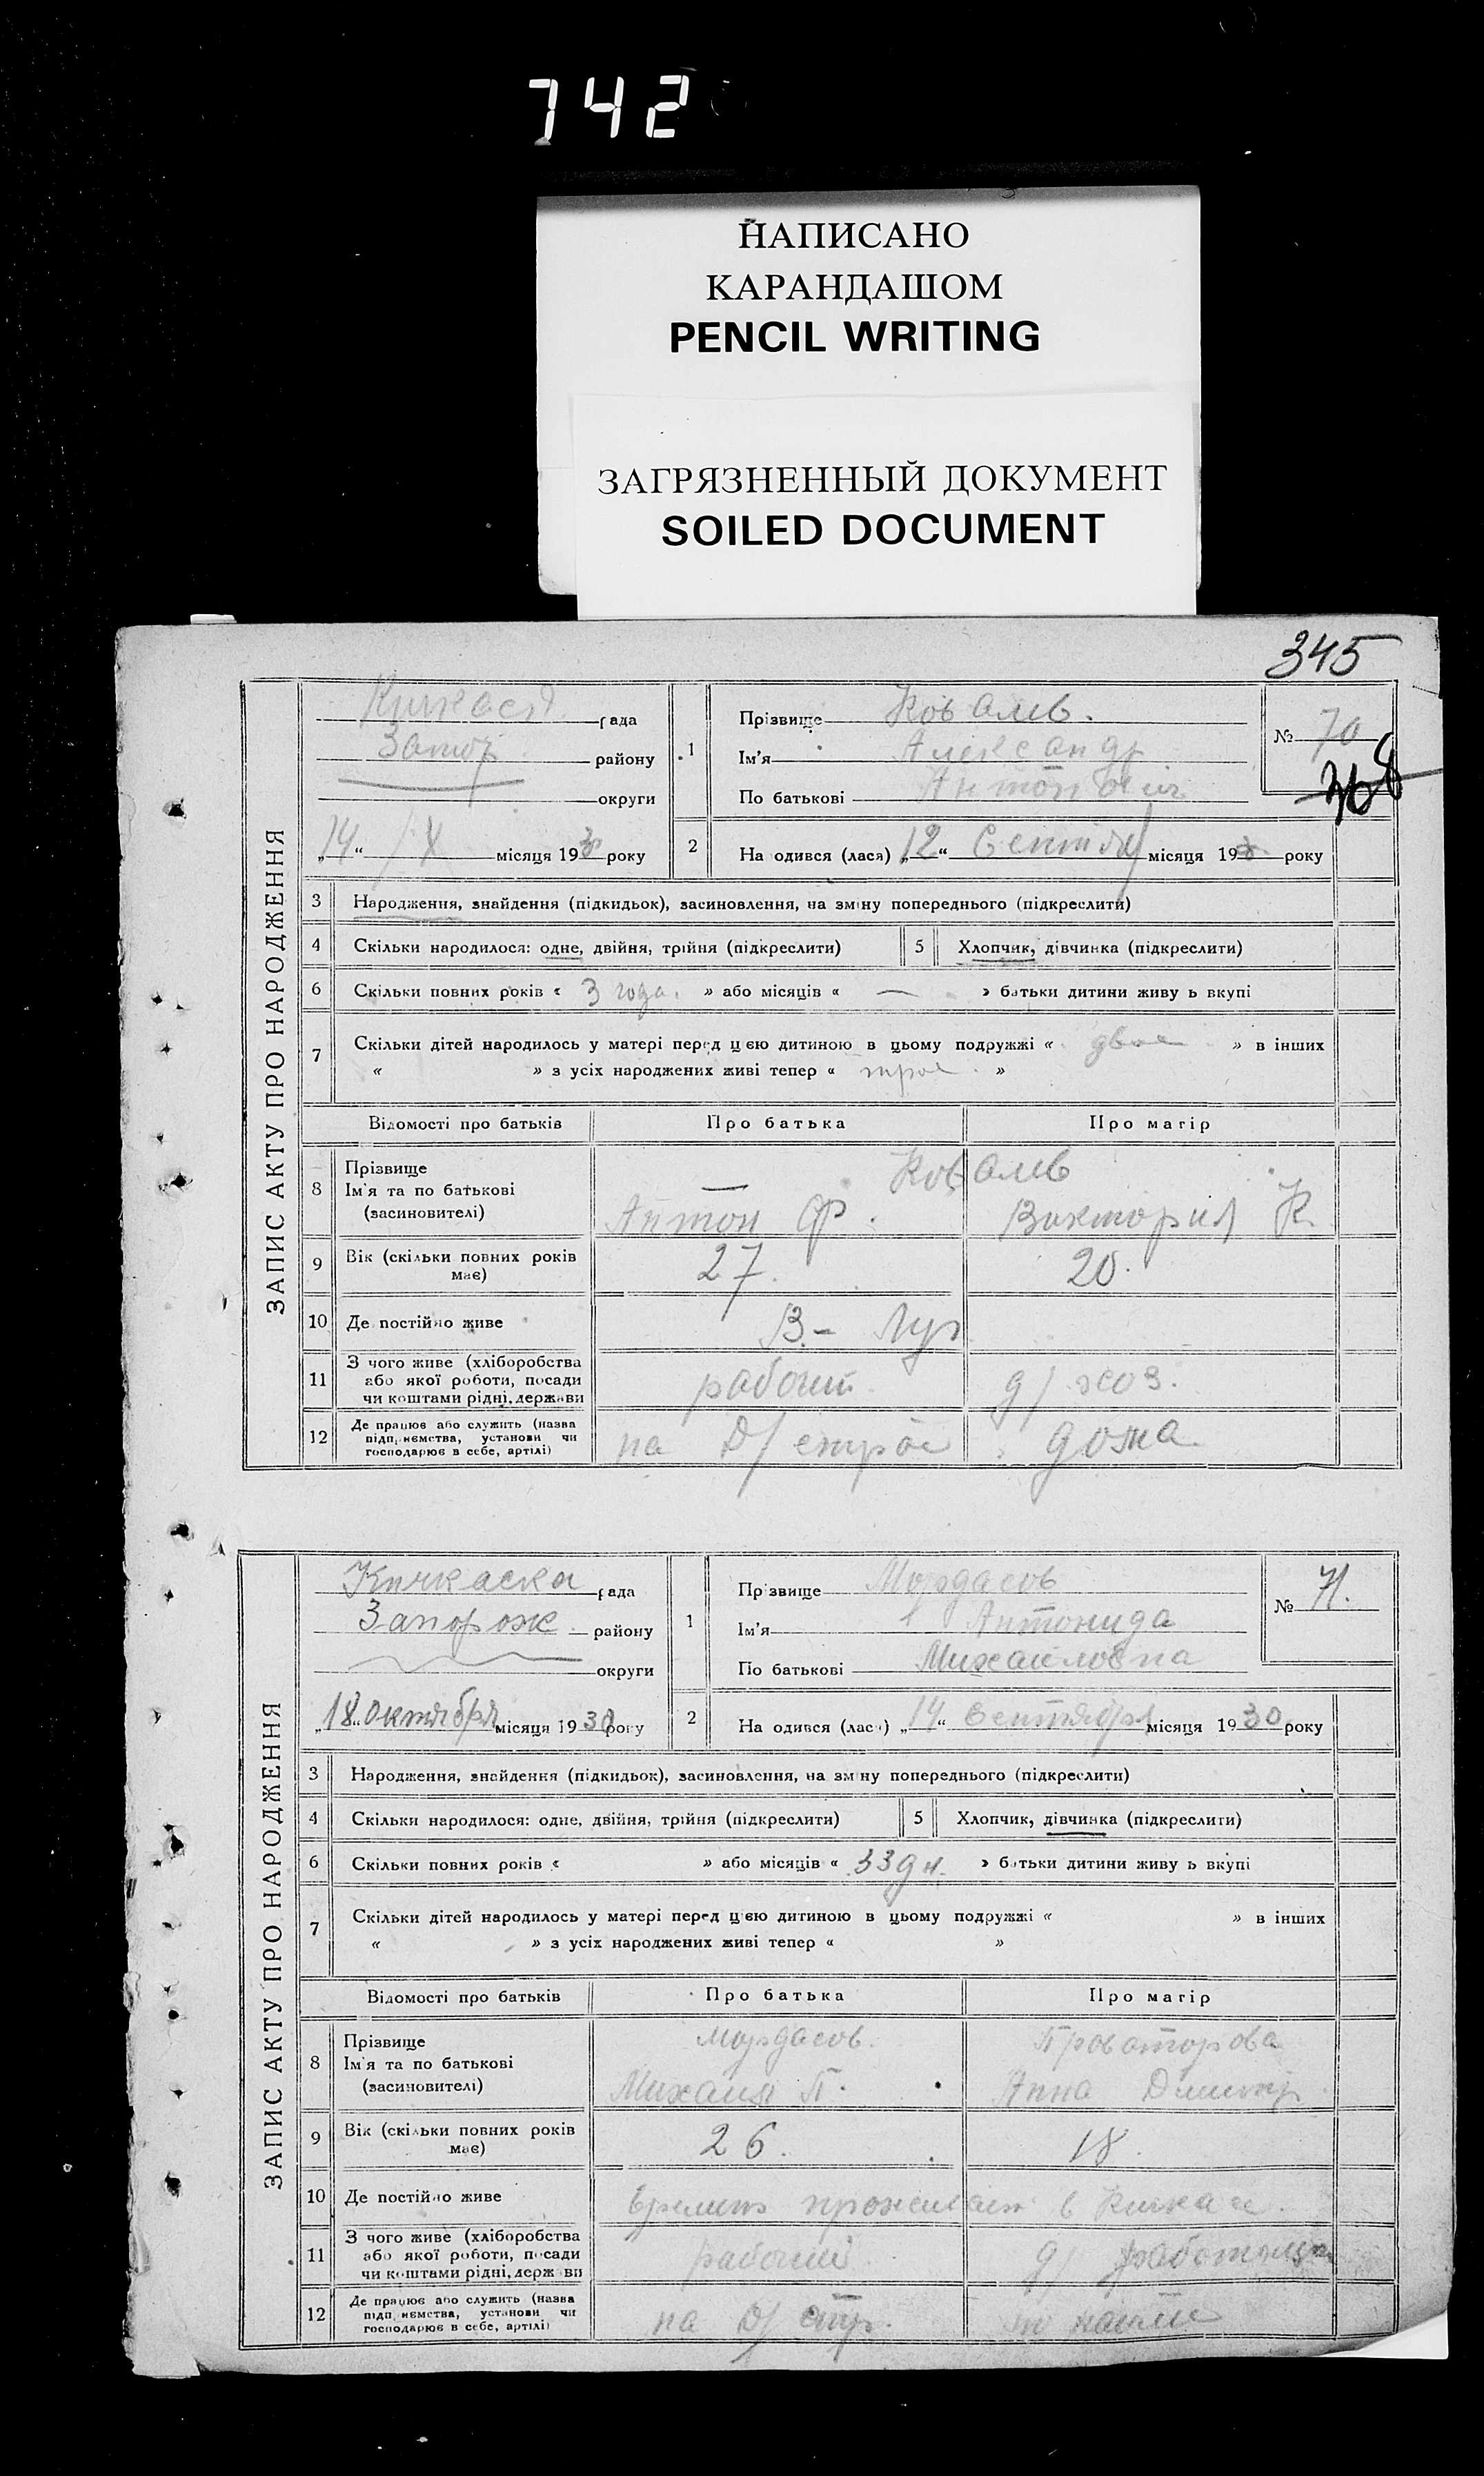 742
НАПИСАНО
КАРАНДАШОМ
PENCIL WRITING
ЗАГРЯЗНЕННЫЙ ДОКУМЕНТ
SOILED DOCUMENT
345
ЗАПИС АКТУ ПРО НАРОДЖЕННЯ
рада
Запор району
округи
„14“ IX місяця 1930 року
1 Прізвище Коваль.
Ім'я Александр
По батькові Антонович
№ 70
368
2 На одився (лася) „12“ Сентября місяця 1930 року
3 Народження, знайдення (підкидьок), засиновлення, на зміну попереднього (підкреслити)
4 Скільки народилося: одне, двійня, трійня (підкреслити) 5 Хлопчик, дівчинка (підкреслити)
6 Скільки повних років « 3 года. » або місяців « — » батьки дитини живу ь вкупі
7 Скільки дітей народилось у матері перед цією дитиною в цьому подружжі « двое » в інших
« » з усіх народжених живі тепер « трое. »
Відомості про батьків Про батька Про матір
8 Прізвище Коваль
Ім'я та по батькові
(засиновителі) Антон Ф. Виктория К.
9 Вік (скільки повних років має) 27. 20.
10 Де постійно живе В.- Луг
11 З чого живе (хліборобства або якої роботи, посади чи коштами рідні, держави рабочий д/хоз.
12 Де працює або служить (назва підп, иємства, установи чи господарює в себе, артілі) на Д/строе дома
ЗАПИС АКТУ ПРО НАРОДЖЕННЯ
Кичкаска рада
Запорож району
округи
„18“ Октября місяця 1930 року
1 Прізвище Мордасов
Ім'я Антонида
По батькові Михайловна
№ 71.
2 На одився (лась) „14“ Сентября місяця 1930 року
3 Народження, знайдення (підкидьок), засиновлення, на зміну попереднього (підкреслити)
4 Скільки народилося: одне, двійня, трійня (підкреслити) 5 Хлопчик, дівчинка (підкреслити)
6 Скільки повних років « » або місяців « » батьки дитини живу ь вкупі
7 Скільки дітей народилось у матері перед цією дитиною в цьому подружжі « » в інших
« » з усіх народжених живі тепер « »
Відомості про батьків Про батька Про матір
8 Прізвище Мордасов.
Ім'я та по батькові
(засиновителі) Михаил П. Анна Дмитр.
9 Вік (скільки повних років має) 26. 18.
10 Де постійно живе проживает в Кичкасе.
11 З чого живе (хліборобства або якої роботи, посади чи коштами рідні, держави рабочий д/работница
12 Де працює або служить (назва підп, иємства, установи чи господарює в себе, артілі) на Д/стр.